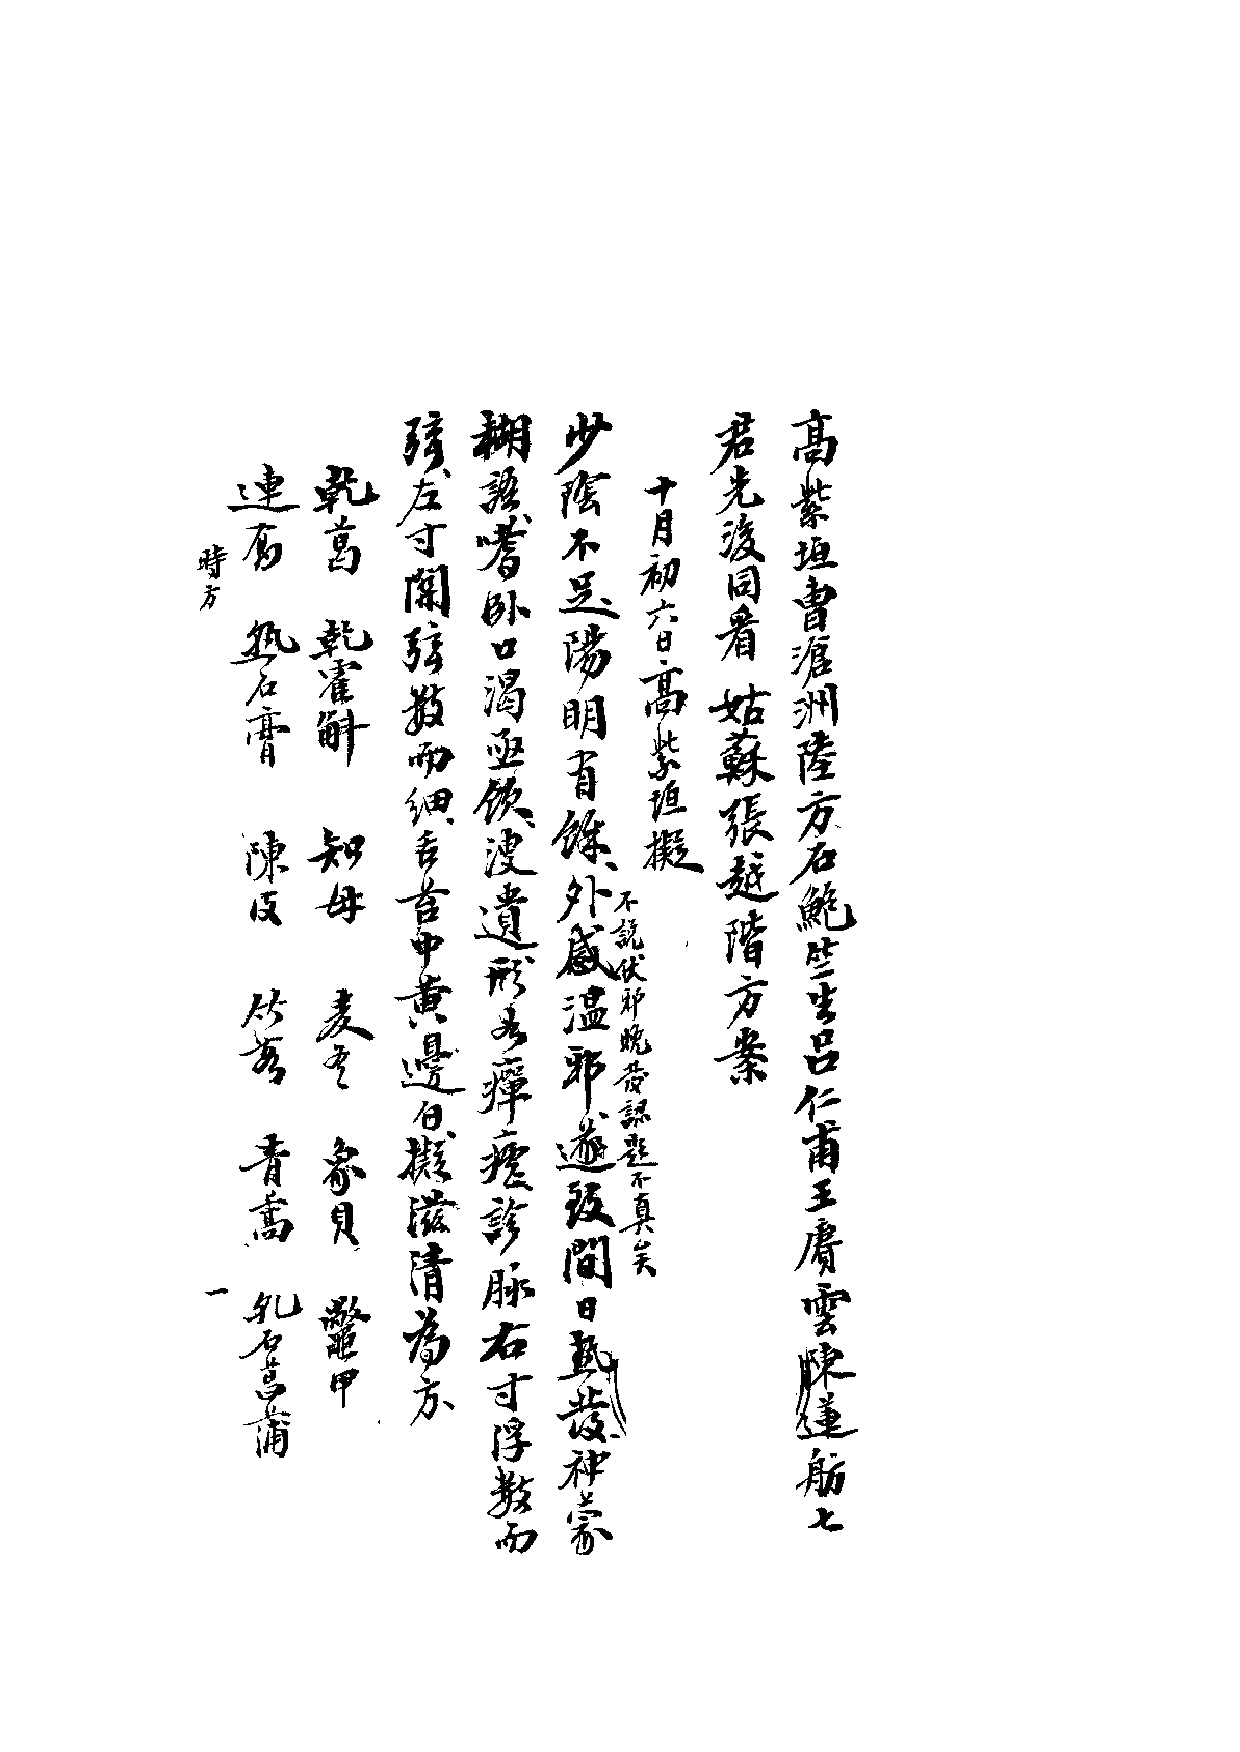 高紫垣曹滄洲陸方石鮑竺生呂仁甫王賡雲陳蓮舫七
君先後同看 姑蘇張越階方案
十月初六日高紫垣擬
不說伏邪晚發認題不真矣
少陰不足陽明有餘外感溫邪遂致間日熱發神蒙
糊語嗜卧口渴亟飲溲遺形如癉瘧診脈右寸浮數而
弦左寸關弦數而細舌苔中黃邊白擬滋清為方
乾葛 乾霍斛 知母 麦冬 象貝 鼈甲
連翘 熟石膏 陳皮 竹茹 青蒿 乳石菖蒲
時方 一